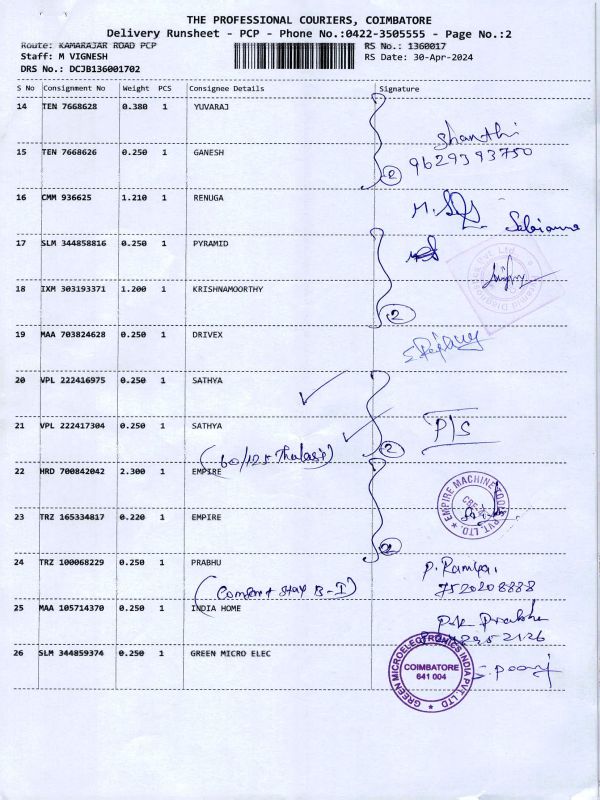 THE PROFESSIONAL COURIERS, COIMBATORE
Delivery Runsheet - PCP - Phone No.:0422-3505555 - Page No.:2
Route: KAMARAJAR ROAD PCP RS No.: 1360017
Staff: M VIGNESH RS Date: 30-Apr-2024
DRS No.: DCJB136001702
S No Consignment No Weight PCS Consignee Details Signature
14 TEN 7668628 0.380 1 YUVARAJ
Shanthi
15 TEN 7668626 0.250 1 GANESH 9629393750
2
16 CMM 936625 1.210 1 RENUGA
17 SLM 344858816 0.250 1 PYRAMID
18 IXM 303193371 1.200 1 KRISHNAMOORTHY
2
19 MAA 703824628 0.250 1 DRIVEX
20 VPL 222416975 0.250 1 SATHYA
21 VPL 222417304 0.250 1 SATHYA P/S
2
22 HRD 700842042 2.300 1 EMPIRE
EMPIRE MACHINE TOOLS PVT. LTD
CBE
23 TRZ 165334817 0.220 1 EMPIRE
2
24 TRZ 100068229 0.250 1 PRABHU P. Ramya
(Comfort Stay B-I) 7520208888
25 MAA 105714370 0.250 1 INDIA HOME P.K Prabhu
26 SLM 344859374 0.250 1 GREEN MICRO ELEC
GREEN MICROELECTRONICS INDIA PVT. LTD
COIMBATORE
641 004
S. Pooj